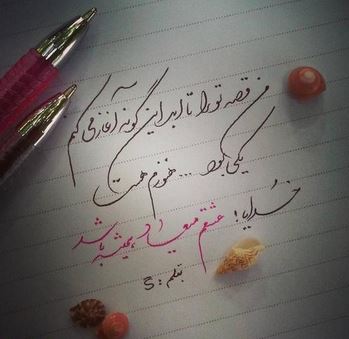 من قصه تو را تا ابد این گونه آغاز می کنم
یکی بود ... هنوزم هست
خدایا! عشقم همیشه باشد
بقلم: گ